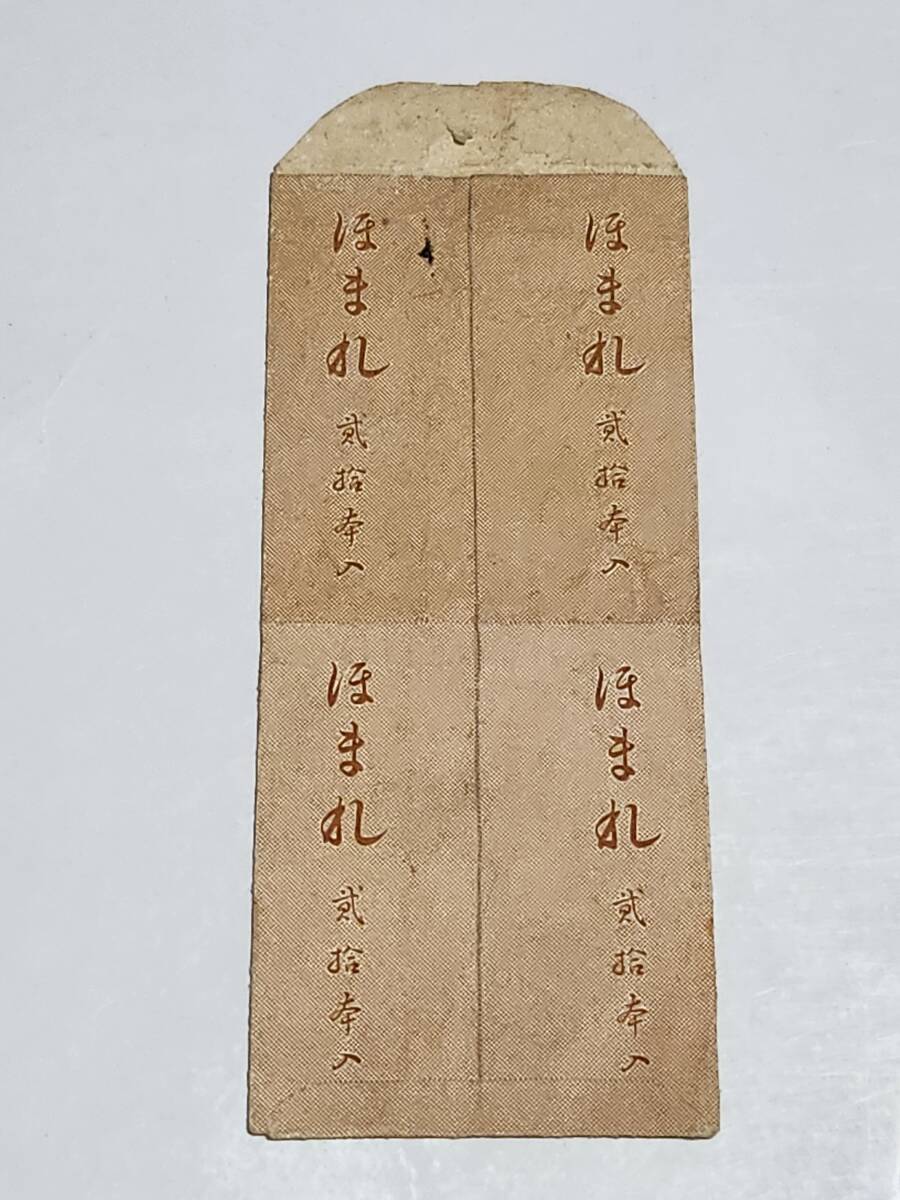 ほまれ 貳拾本入
ほまれ 貳拾本入
ほまれ 貳拾本入
ほまれ 貳拾本入